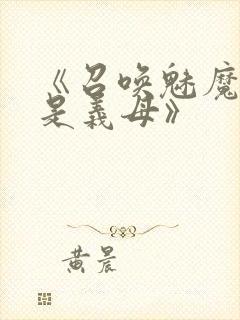 《召唤魅魔
是義母》
黄晨